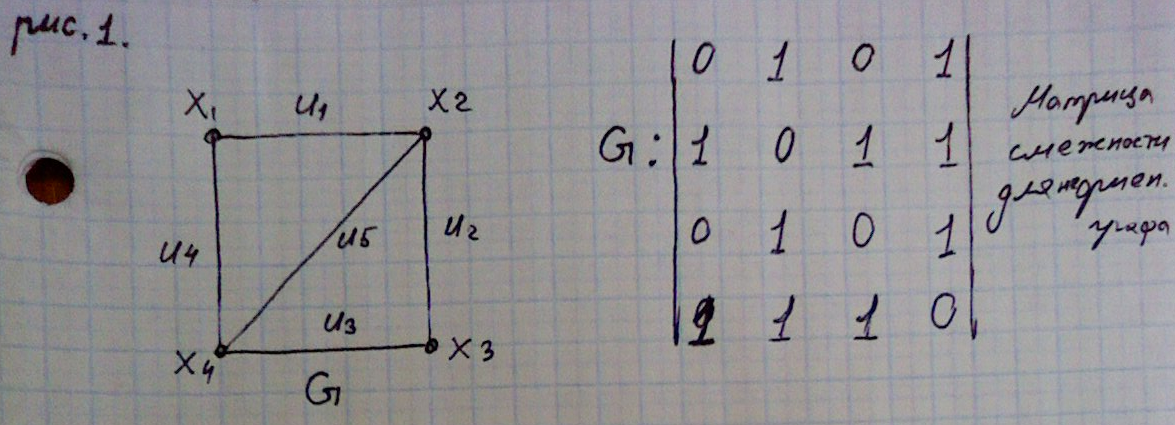 рис. 1.
X1 U1 X2
U4 U5 U2
X4 U3 X3
G
G:
0 1 0 1
1 0 1 1
0 1 0 1
1 1 1 0
Матрица
смежности
для неориен.
графа